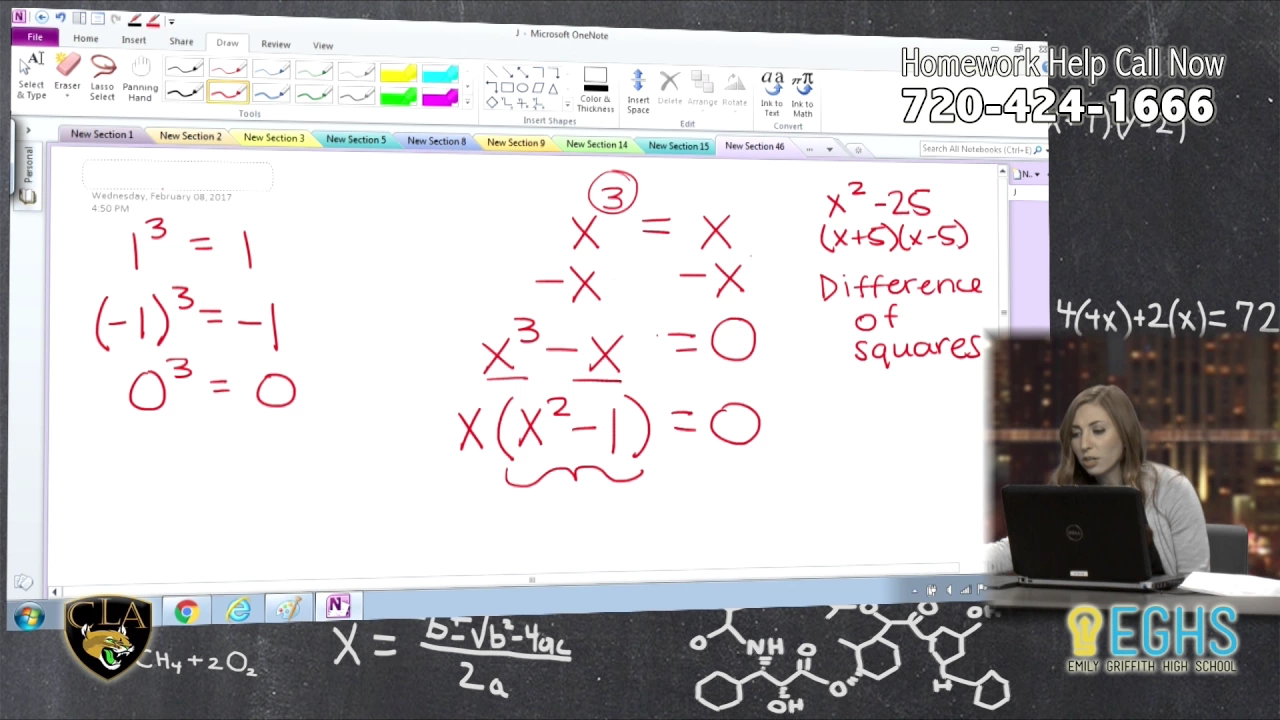 J - Microsoft OneNote
File Home Insert Share Draw Review View
Select & Type
Eraser
Lasso Select
Panning Hand
Color & Thickness
Insert Space
Delete
Arrange
Rotate
Ink to Text
Ink to Math
Tools
Insert Shapes
Edit
Convert
New Section 1 New Section 2 New Section 3 New Section 5 New Section 8 New Section 9 New Section 14 New Section 15 New Section 46 ...
Search All Notebooks (Ctrl+E)
Personal
N..
J
Homework Help Call Now
720-424-1666
Wednesday, February 08, 2017
4:50 PM
1³ = 1
(-1)³ = -1
0³ = 0
x³ = x
-x -x
x³ - x = 0
x(x² - 1) = 0
x² - 25
(x+5)(x-5)
Difference
of
squares
4(4x)+2(x)=72
DELL
CLA
CH₄ + 2O₂
X = b±√b²-4ac
2a
O NH O O OH
OH O H
EGHS
EMILY GRIFFITH HIGH SCHOOL